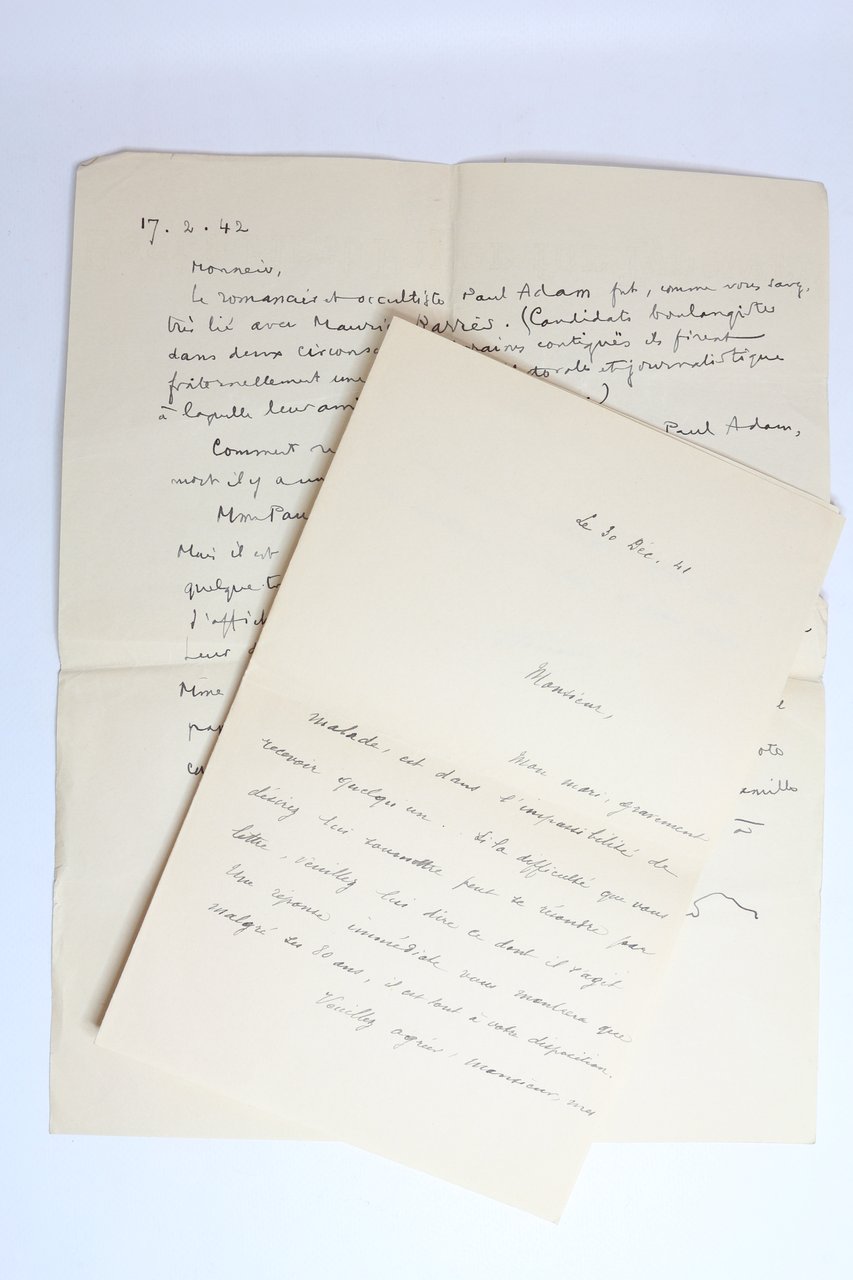 17. 2. 42
Monsieur,
Le romancier et occultiste Paul Adam fut, comme vous savez,
très lié avec Maurice Barrès. (Candidats boulangistes
dans deux circonsc raires contiguës ils firent
fraternellement une torale et journalistique
à laquelle leur ami )
Paul Adam,
Comment
mort il y a un
Mme Pau
Mais il est
quelque t
d'affich
Leur
Mme
oto
amille
à
Le 30 Déc. 41
Monsieur,
Mon mari, gravement
malade, est dans l'impossibilité de
recevoir quelqu'un. Si la difficulté que vous
désirez lui soumettre peut se résoudre par
lettre, veuillez lui dire ce dont il s'agit
Une réponse immédiate vous montrera que
malgré ses 80 ans, il est tout à votre disposition.
Veuillez agréer, monsieur, mes